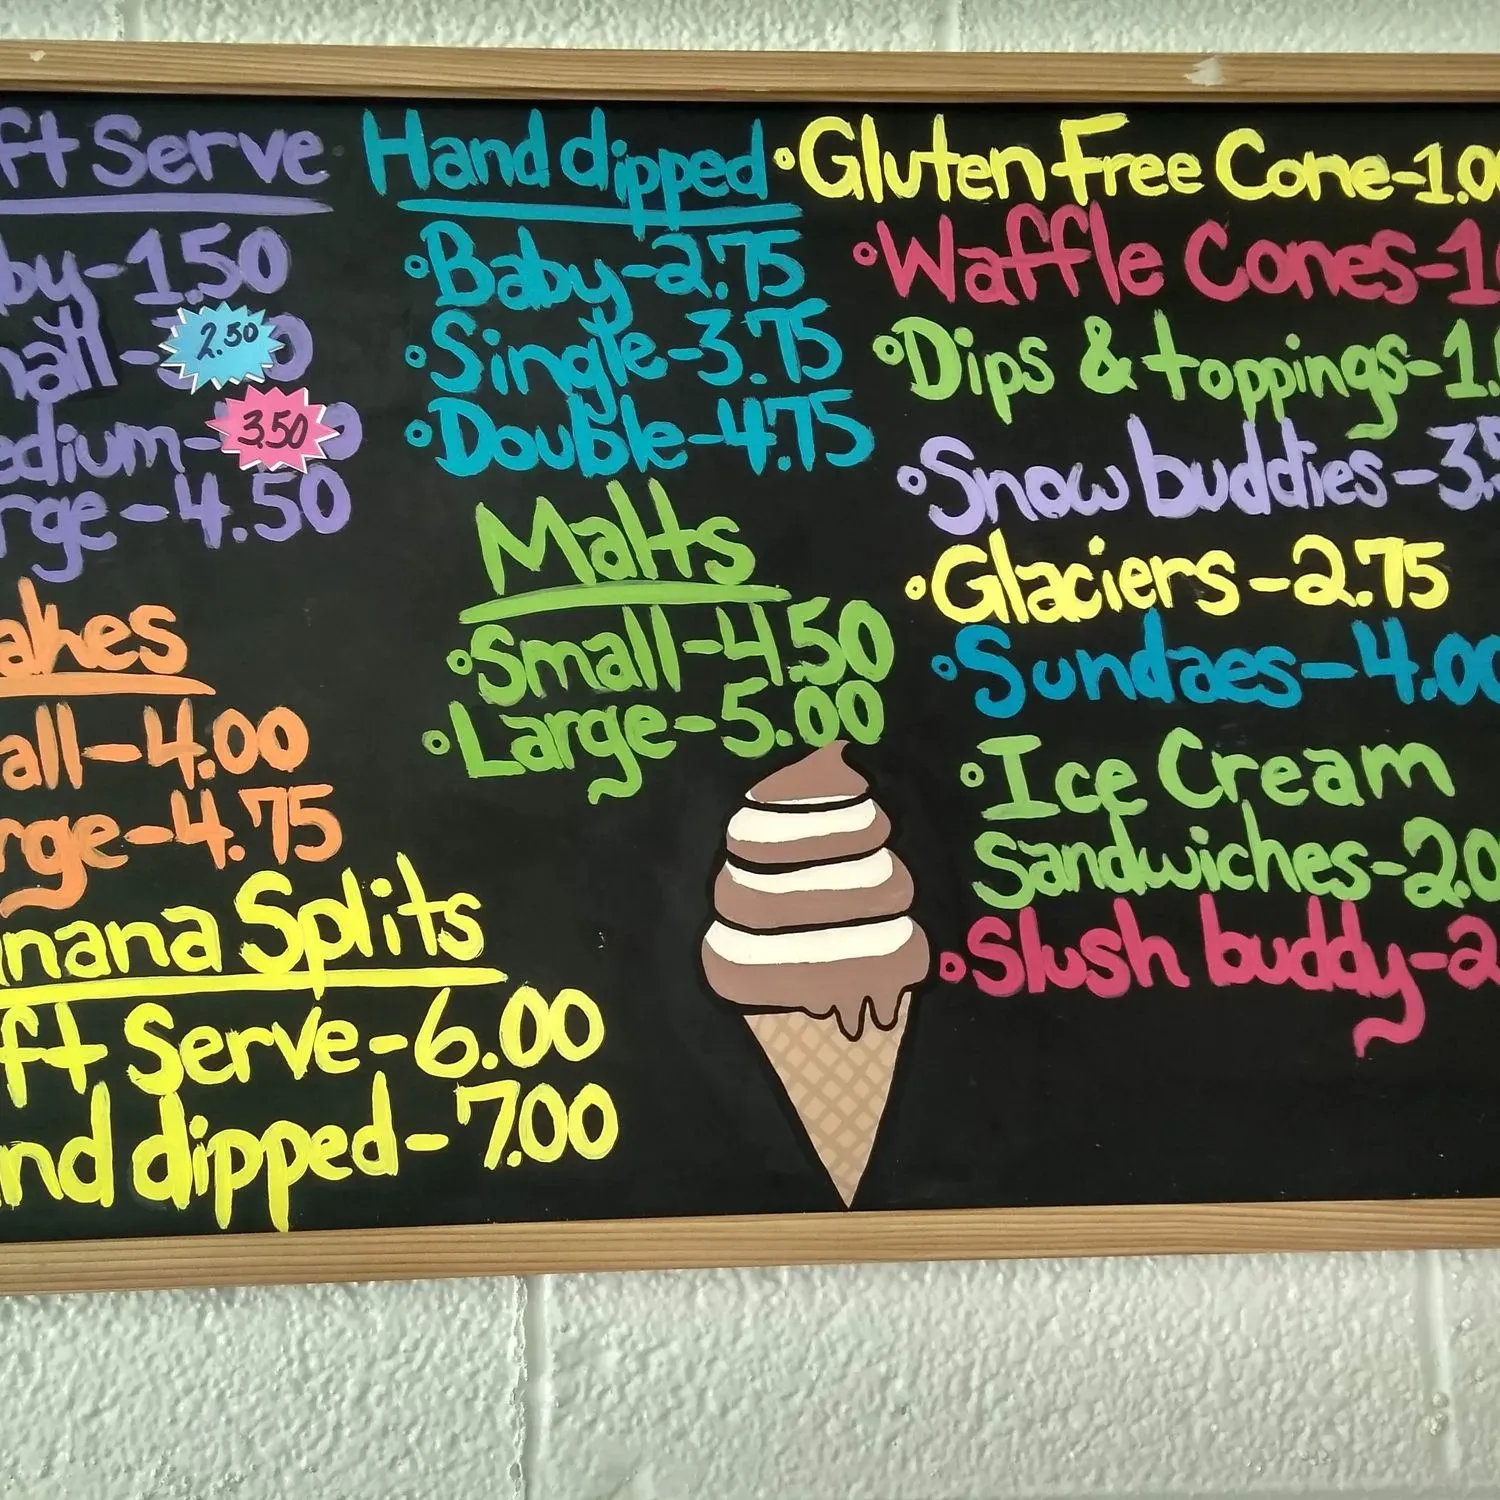 ft Serve
by-1.50
all- 2.50
edium- 3.50
rge-4.50
akes
all-4.00
rge-4.75
nana Splits
ft Serve-6.00
nd dipped-7.00
Hand dipped
Baby-2.75
Single-3.75
Double-4.75
Malts
Small-4.50
Large-5.00
Gluten Free Cone-1.00
Waffle Cones-1
Dips & toppings-1.0
Snow buddies-3.5
Glaciers-2.75
Sundaes-4.00
Ice Cream
Sandwiches-2.0
Slush buddy-2